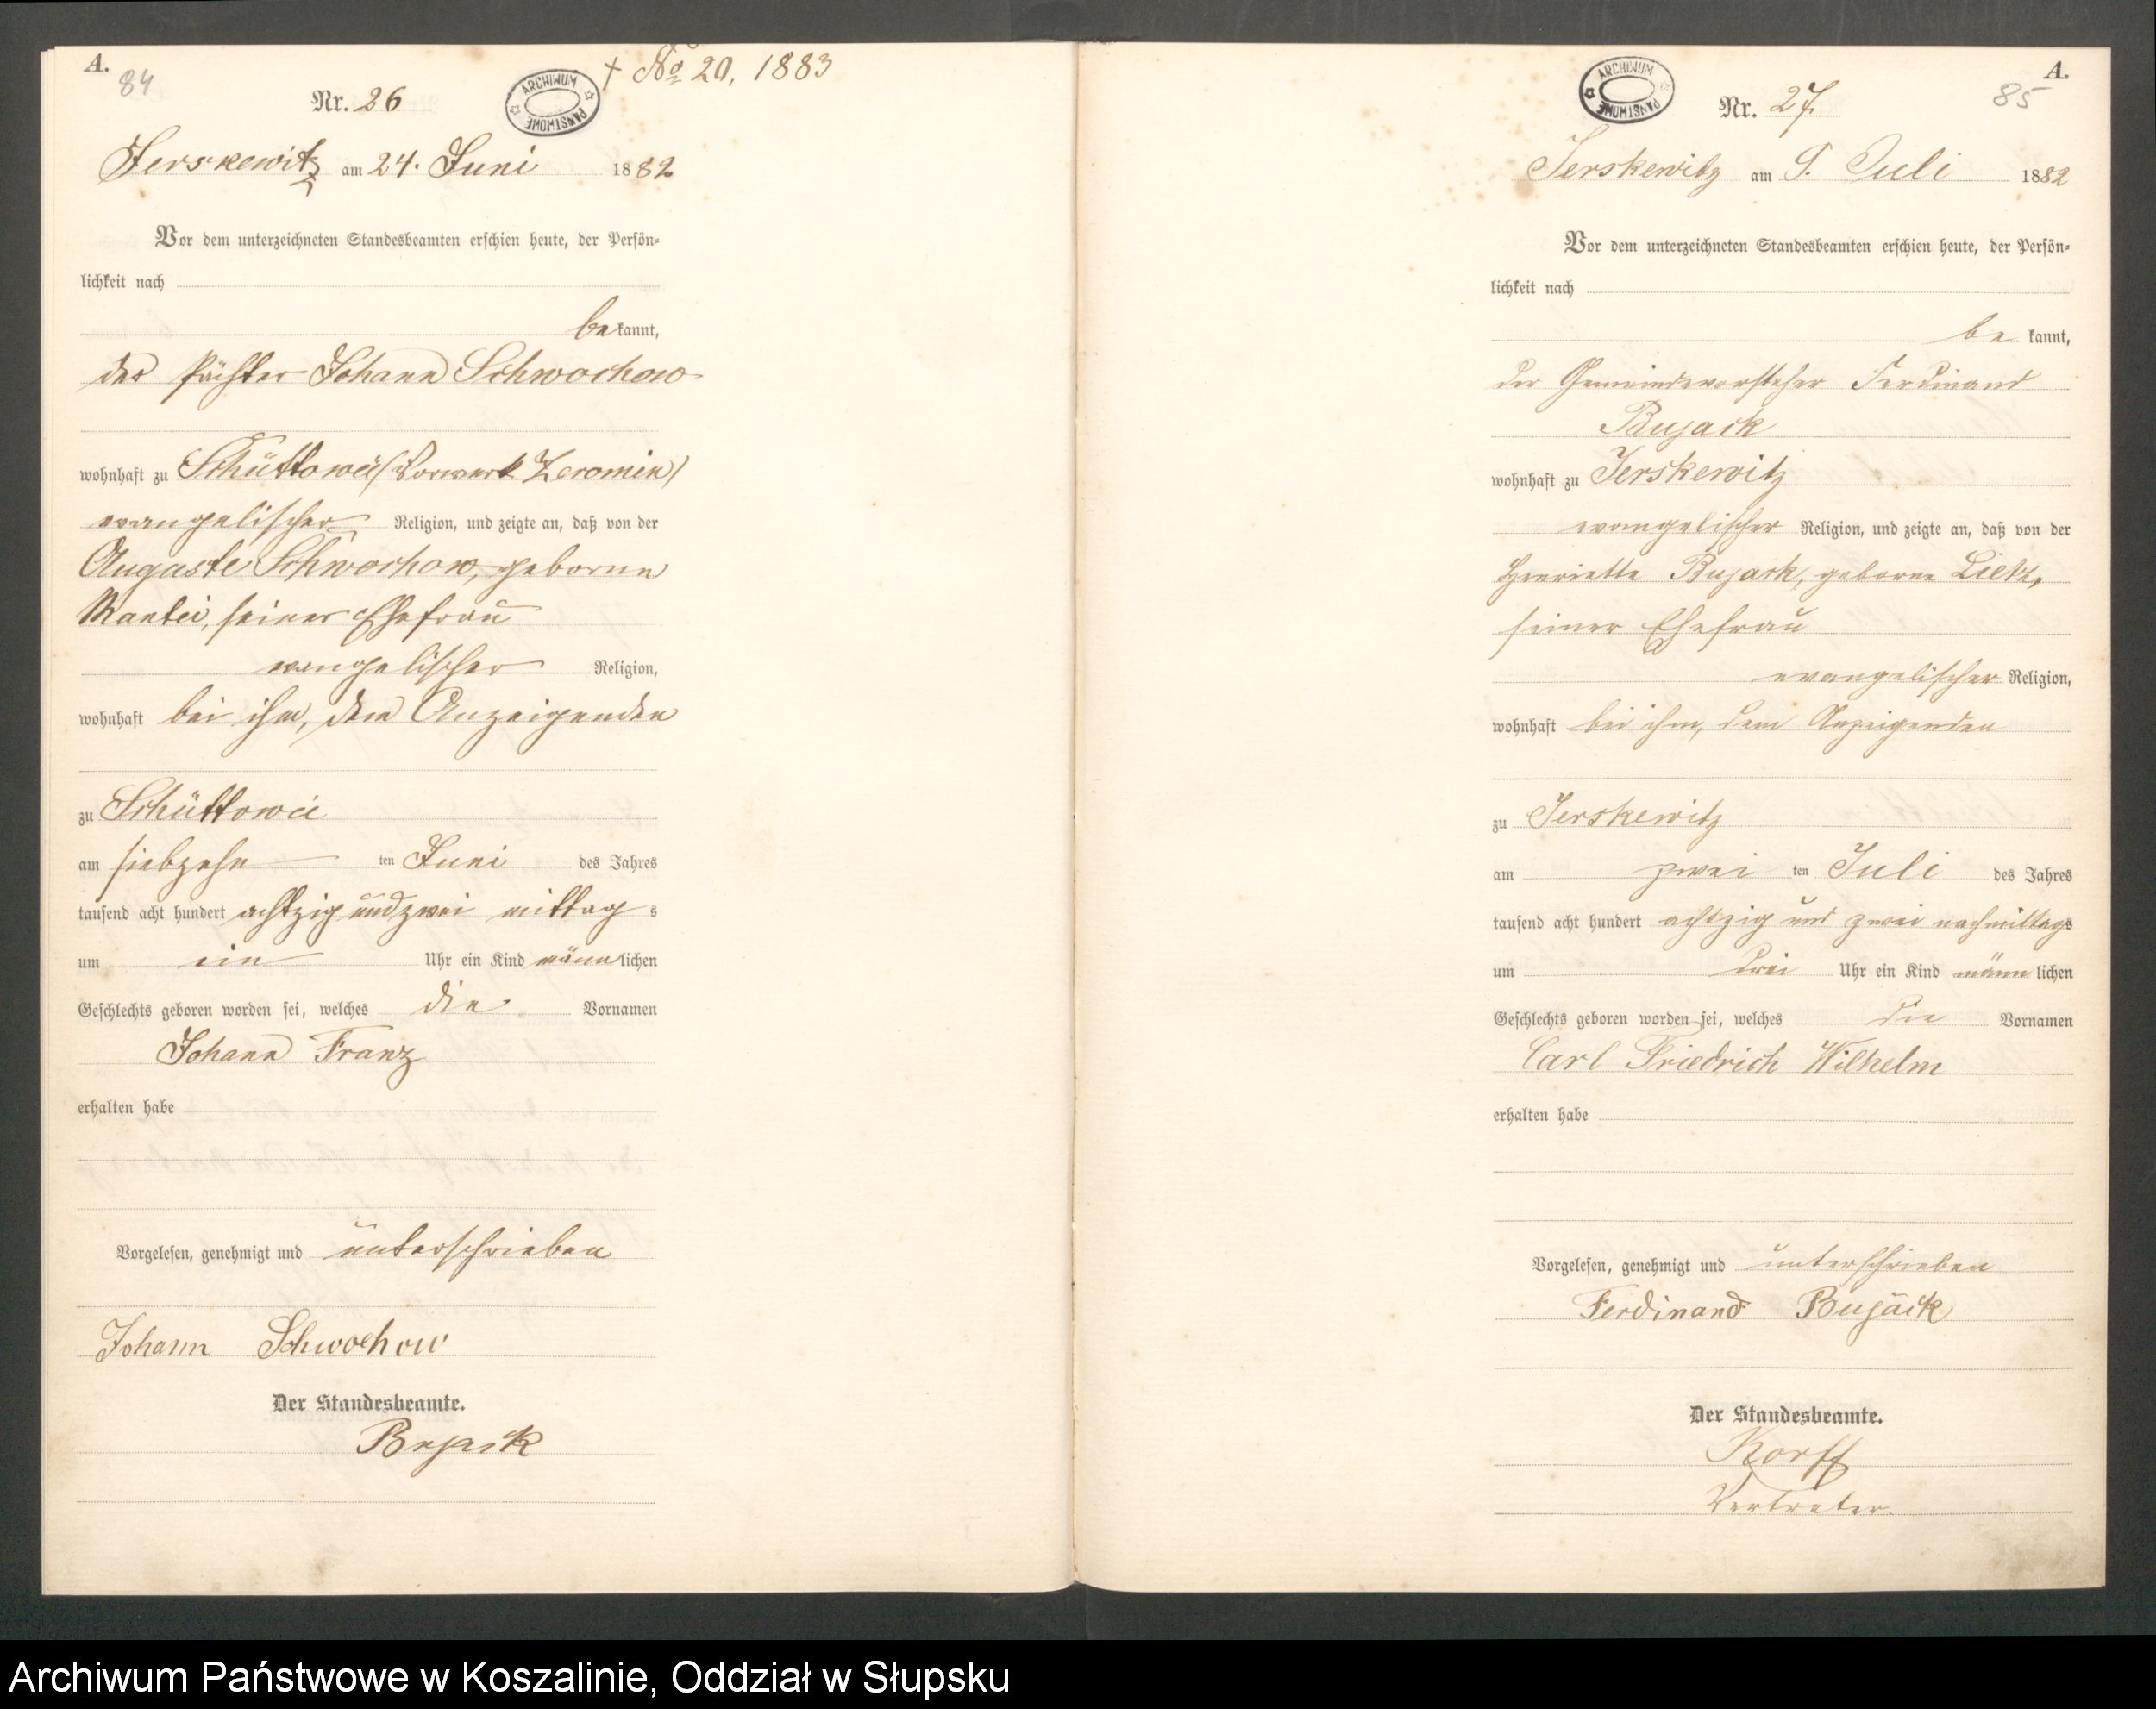 A.
84
† No 20, 1883
ARCHIWUM PAŃSTWOWE
Nr. 26
Jerskewitz am 24. Juni 1882
Vor dem unterzeichneten Standesbeamten erschien heute, der Persön-
lichkeit nach
bekannt,
der Pächter Johann Schwochow
wohnhaft zu Schüttowei (Vorwerk Zeromin)
evangelischer Religion, und zeigte an, daß von der
Auguste Schwochow, geborne
Mantei, seiner Ehefrau
evangelischer Religion,
wohnhaft bei ihm, dem Anzeigenden
zu Schüttowei
am siebzehn ten Juni des Jahres
tausend acht hundert achtzig und zwei mittags
um ein Uhr ein Kind männlichen
Geschlechts geboren worden sei, welches die Vornamen
Johann Franz
erhalten habe
Vorgelesen, genehmigt und unterschrieben
Johann Schwochow
Der Standesbeamte.
Bujack
A.
85
ARCHIWUM PAŃSTWOWE
Nr. 27
Jerskewitz am 9. Juli 1882
Vor dem unterzeichneten Standesbeamten erschien heute, der Persön-
lichkeit nach
bekannt,
der Gemeindevorsteher Ferdinand
Bujack
wohnhaft zu Jerskewitz
evangelischer Religion, und zeigte an, daß von der
Henriette Bujack, geborne Lietz,
seiner Ehefrau
evangelischer Religion,
wohnhaft bei ihm, dem Anzeigenden
zu Jerskewitz
am zwei ten Juli des Jahres
tausend acht hundert achtzig und zwei nachmittags
um drei Uhr ein Kind männlichen
Geschlechts geboren worden sei, welches die Vornamen
Carl Friedrich Wilhelm
erhalten habe
Vorgelesen, genehmigt und unterschrieben
Ferdinand Bujack
Der Standesbeamte.
Korff
Vertreter.
Archiwum Państwowe w Koszalinie, Oddział w Słupsku